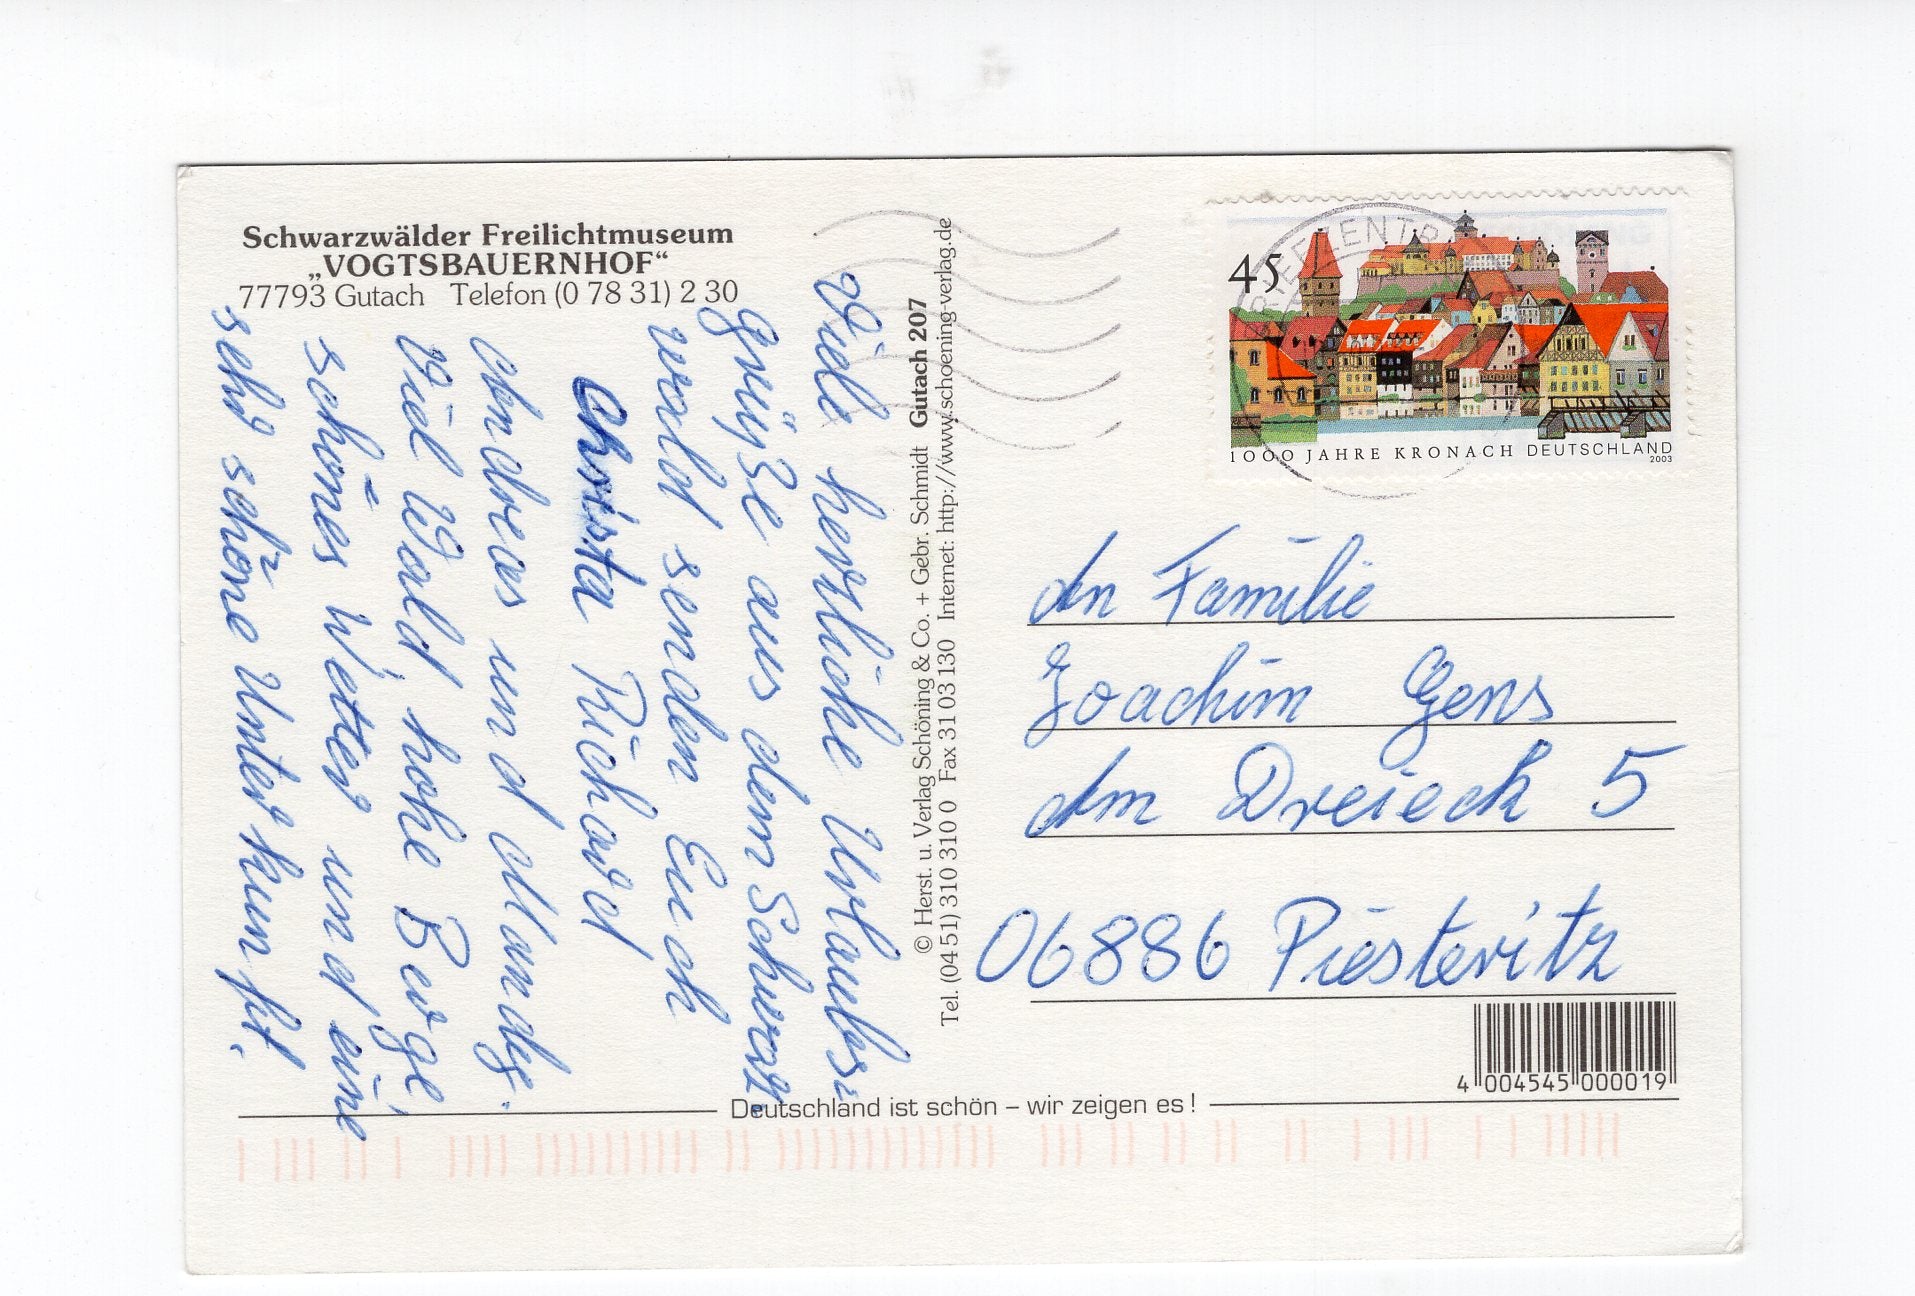 Schwarzwälder Freilichtmuseum
„VOGTSBAUERNHOF“
77793 Gutach Telefon (0 78 31) 2 30
Viele herrliche Urlaubs-
grüße aus dem Schwarz-
wald senden Euch
Christa Richard
Andreas und Mandy.
Viel Wald, hohe Berge,
schönes Wetter und eine
sehr schöne Unterkunft.
© Herst. u. Verlag Schöning & Co. + Gebr. Schmidt Gutach 207
Tel. (04 51) 310 310 0 Fax 31 03 130 Internet: http://www.schoening-verlag.de
BRIEFZENTR
45
1000 JAHRE KRONACH DEUTSCHLAND
2003
An Familie
Joachim Gens
Am Dreieck 5
06886 Piesteritz
4 004545 000019
Deutschland ist schön – wir zeigen es !